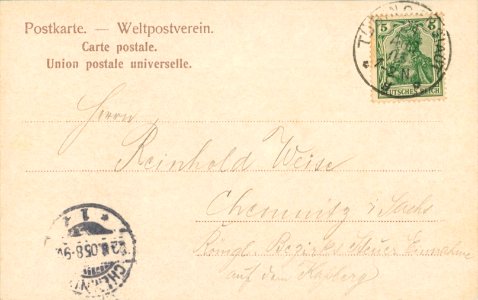 Postkarte. — Weltpostverein.
Carte postale.
Union postale universelle.
5 5
DEUTSCHES REICH
Herrn
Reinhold Weise
Chemnitz i/Sachs
Königl. Bezirks Steuer Einnahme
auf dem Kaßberg
CHEMN